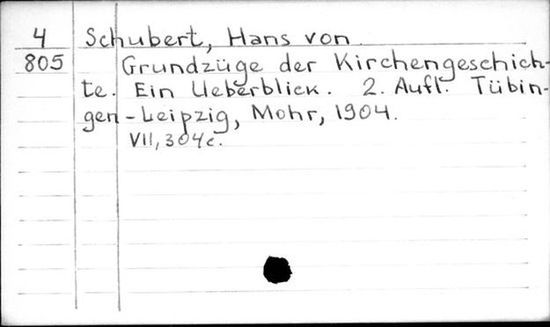 4 Schubert, Hans von
805 Grundzüge der Kirchengeschich-
te. Ein Ueberblick. 2. Aufl. Tübin-
gen-Leipzig, Mohr, 1904.
VII, 304c.